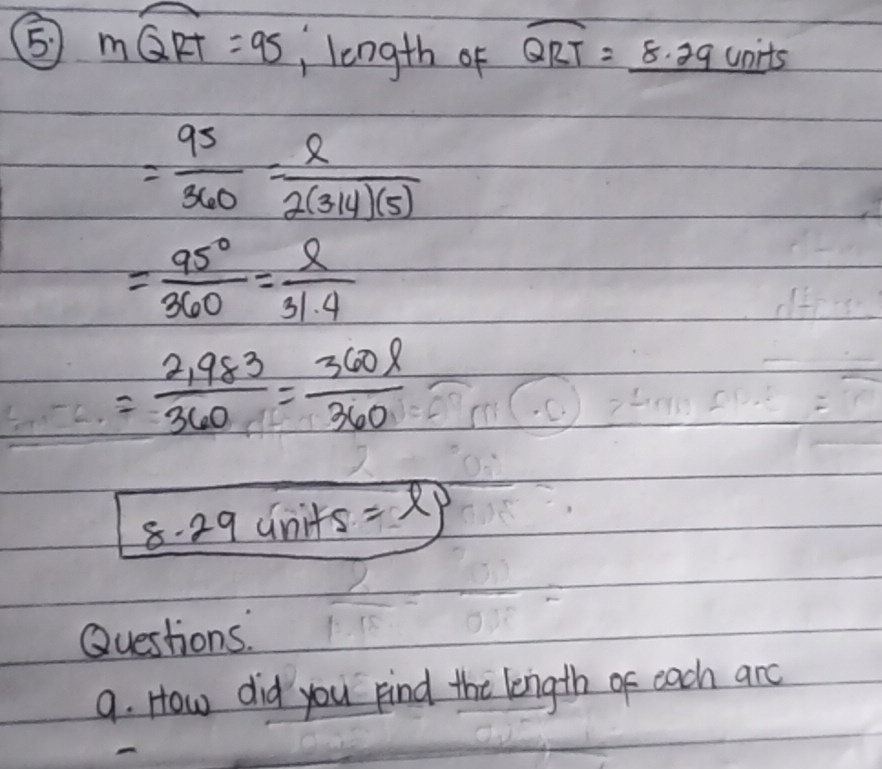 5. m QRT = 95 ; length of QRT = 8.29 units
= 95/360 = l/2(3.14)(5)
= 95°/360 = l/31.4
= 2,983/360 = 360l/360
8.29 units = l
Questions:
a. How did you find the length of each arc
-